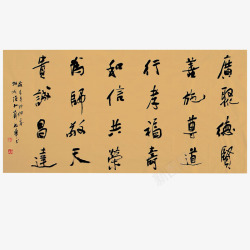 廣聚德賢
善施尊道
行孝福壽
和信共榮
為師敬天
貴誠昌達